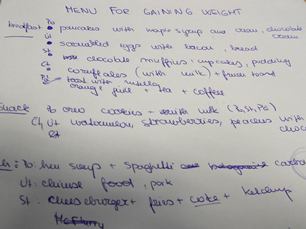 MENU FOR GAINING WEIGHT
Po
breakfast • pancakes with maple syrup and cream, chocolate cream
Ut
• scrambled eggs with bacon, bread
St chocolate muffins, cupcakes, pudding
cornflakes (with milk) + french toast
toast with nutella
orange juice + tea + coffee
Snack: Po oreo cookies + milk (Po, St, Pi)
Ut watermelon, strawberries, peaches with
Po: soup + spaghetti
Ut: chinese food, pork
St: cheeseburger + fries + coke + ketchup
McFlurry